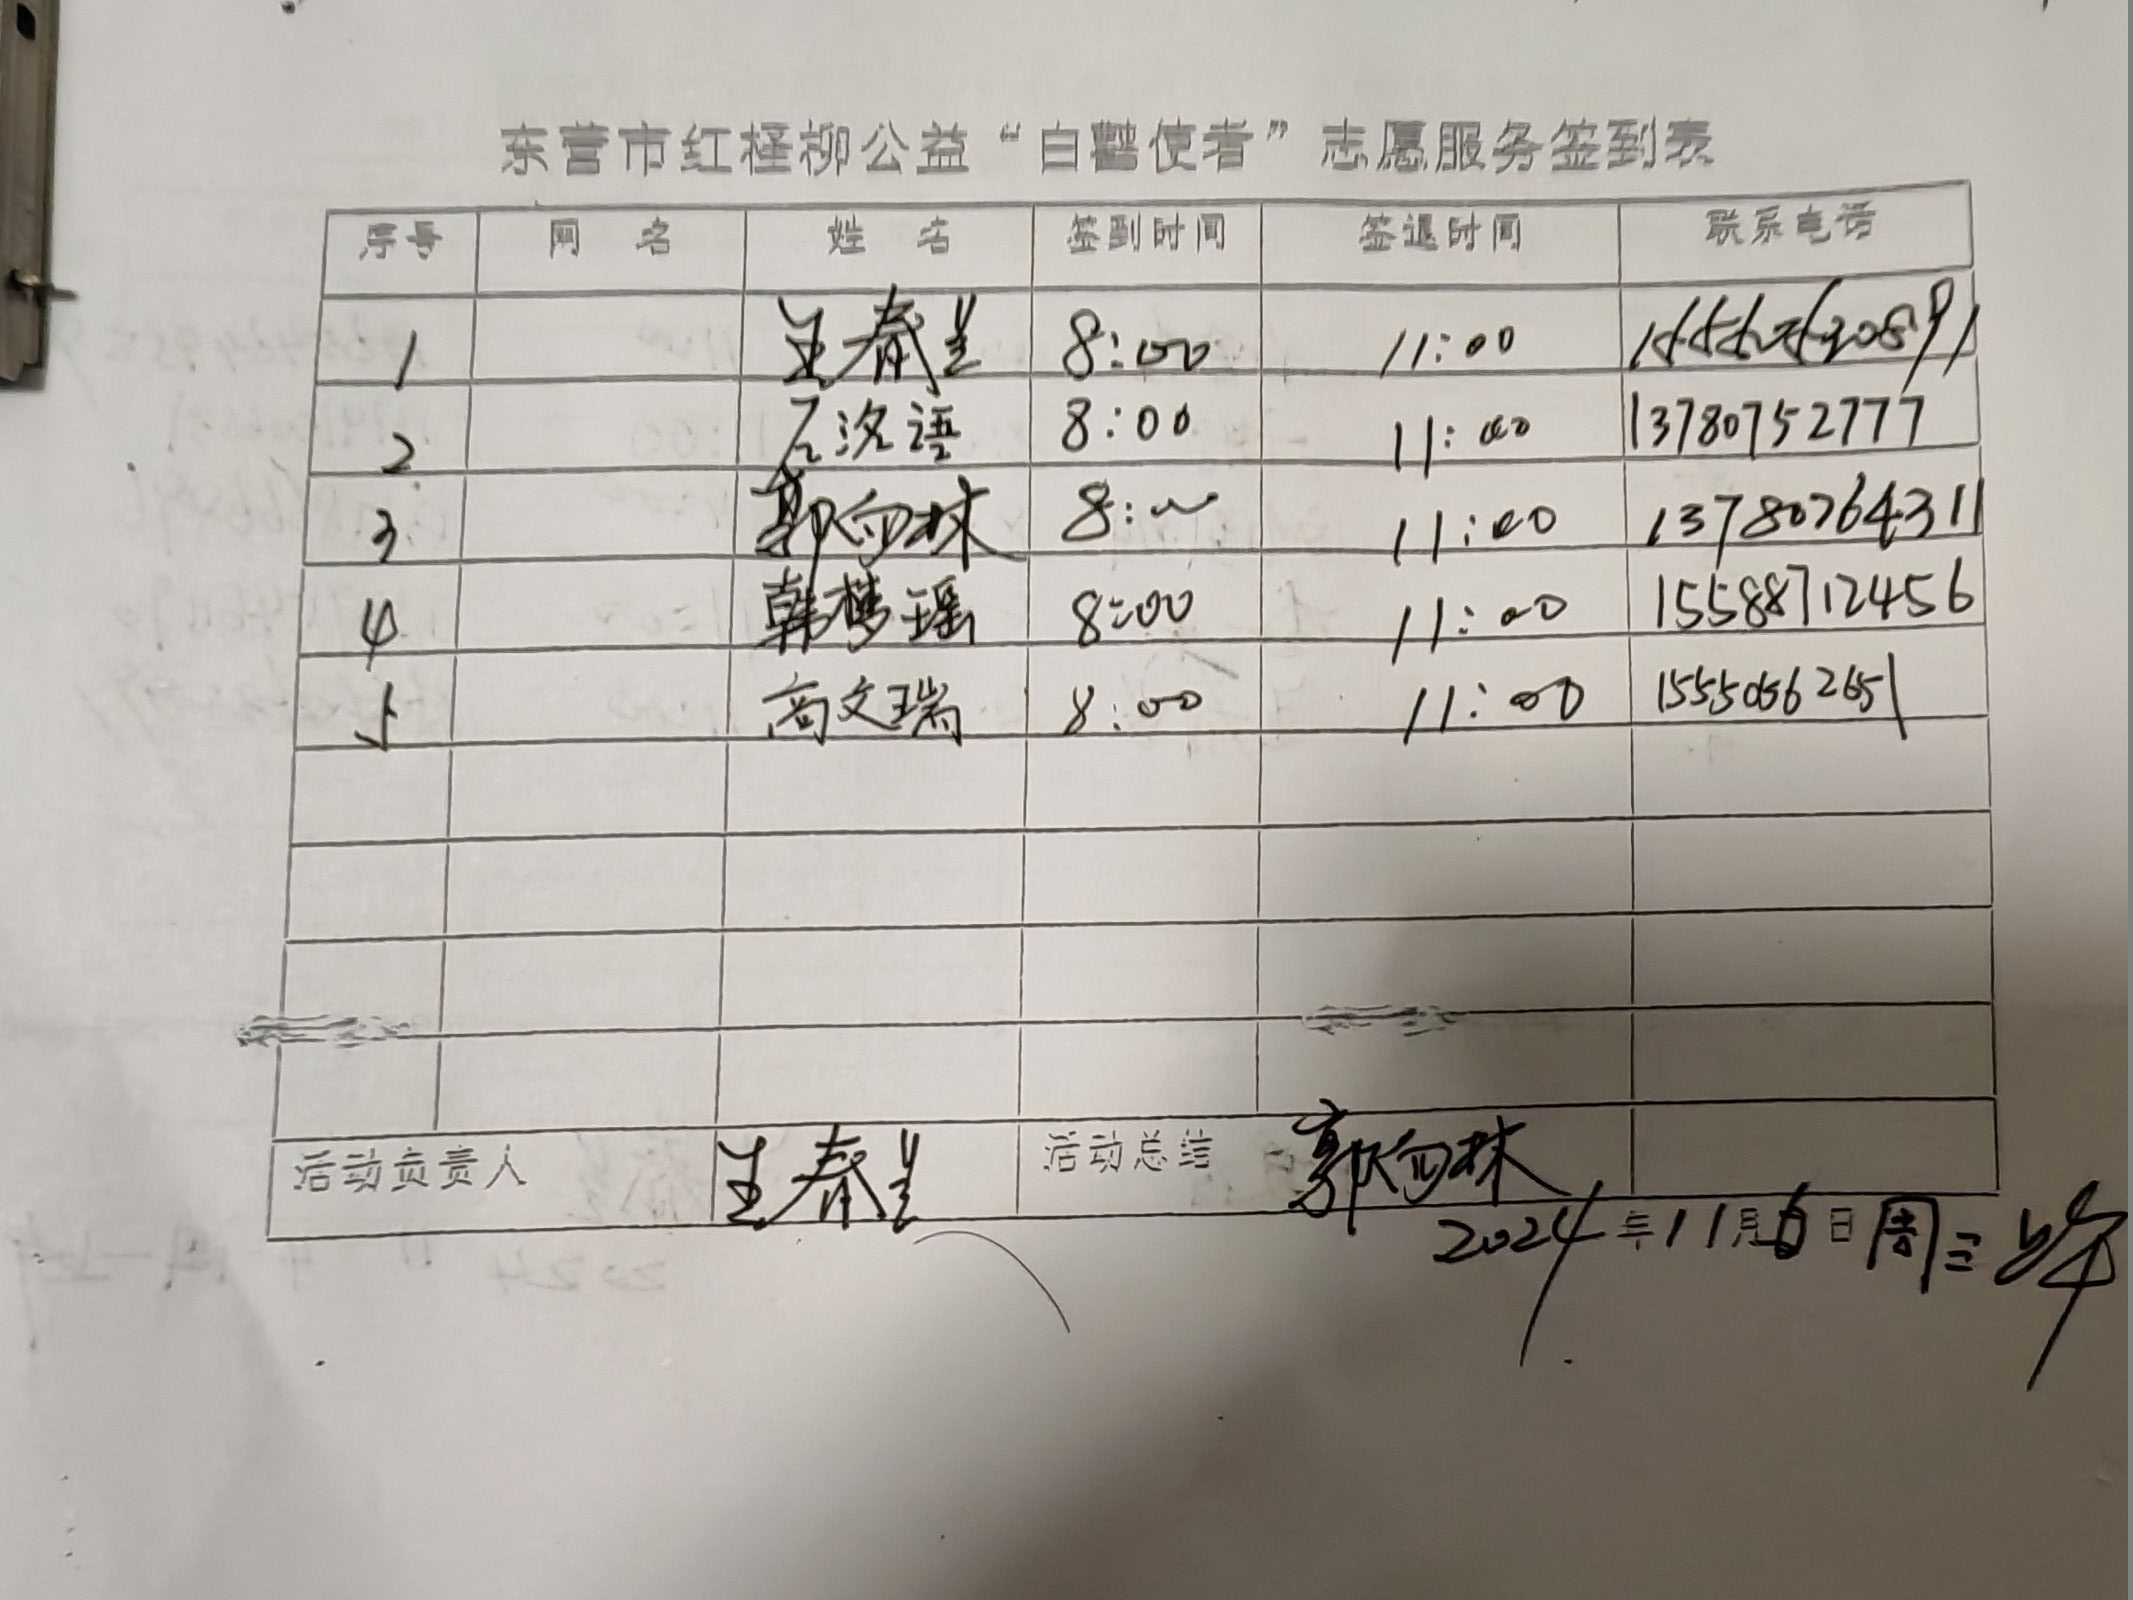 东营市红柽柳公益“白鹳使者”志愿服务签到表
序号 网 名 姓 名 签到时间 签退时间 联系电话
1 王春兰 8:00 11:00
2 石洺语 8:00 11:00 13780752777
3 郭向林 8:00 11:00 13780764311
4 韩梦瑶 8:00 11:00 15588712456
5 高文瑞 8:00 11:00 15550562651
活动负责人 王春兰 活动总结 郭向林
2024年11月6日 周三